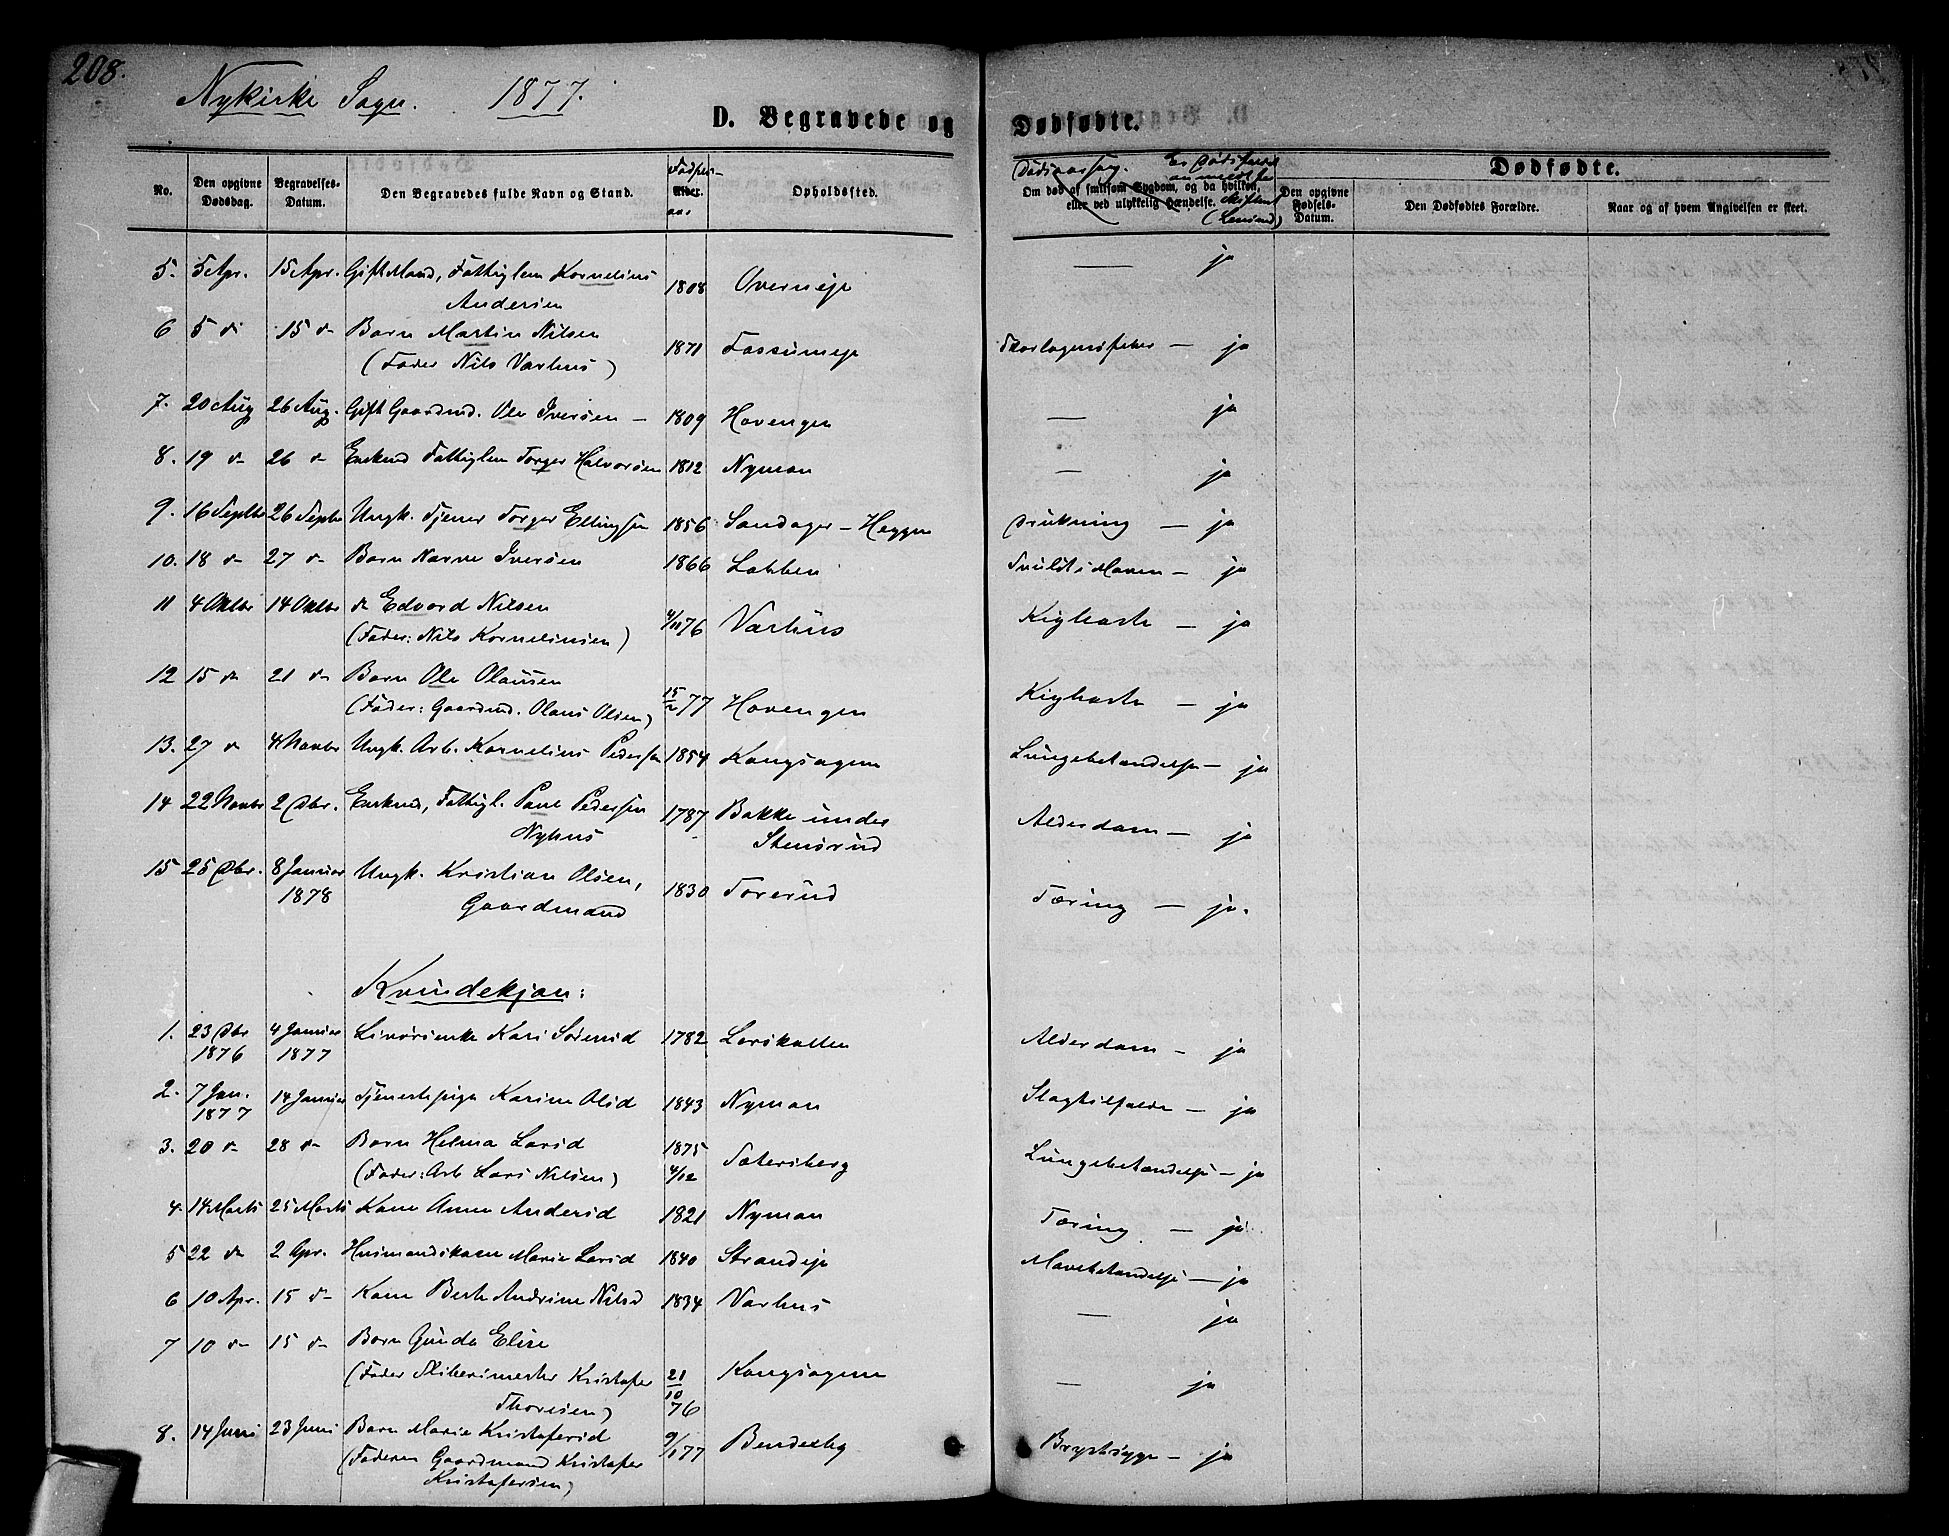 208.
Nykirke Sogn. 1877.
D. Begravede og Dødfødte.
No.
Den opgivne Dødsdag.
Begravelses-Datum.
Den Begravedes fulde Navn og Stand.
Fødsels-
Alder.
aar
Opholdssted.
Dødsaarsag.
Er Dødsfaldet anmeldt for Skifteretten (Lensmd)
Om død af smitsom Sygdom, og da hvilken, eller ved ulykkelig Hændelse.
Dødfødte.
Den opgivne Fødsels-Datum.
Den Dødfødtes Forældre.
Naar og af hvem Angivelsen er skeet.
5. 5 Apr. 15 Apr. Gift Mand, Fattiglem Kornelius Andersen 1808 Overneje — ja
6 5 d 15 d Barn Martin Nilsen (Fader Nils Varhus) 1871 Fossumeje Skarlagensfeber — ja
7. 20 Aug 26 Aug. Gift Gaardmd. Ole Iversen — 1809 Hovengen — ja
8. 19 d 26 d Enkmd Fattiglem Torger Halvorsen 1812 Nymon — ja
9. 16 Septbr 26 Septbr Ungk. Tjener Torger Ellingsen 1856 Sandager - Heggen Drukning — ja
10. 18 d 27 d Barn Narve Iversen 1866 Løkken Svulst i Maven — ja
11 4 Oktbr 14 Oktbr d Edvard Nilsen (Fader: Nils Korneliussen) 4/11 76 Varhus Kighoste — ja
12 15 d 21 d Barn Ole Olausen (Fader: Gaardmd. Olaus Olsen) 15/2 77 Hovengen Kighoste — ja
13. 27 d 4 Novbr Ungk. Arb. Kornelius Pedersen 1854 Kongsagene Lungebetændelse — ja
14 22 Novbr 2 Dbr. Enkmd, Fattigl. Paul Pedersen Nyhus 1787 Bakke under Stensrud Alderdom — ja
15 25 Dbr. 8 Januar 1878 Ungk. Kristian Olsen, Gaardmand 1830 Torerud Tæring — ja.
Kvindekjøn:
1. 23 Dbr 1876 4 Januar 1877 Livørenke Kari Sørensd 1782 Lerskallen Alderdom — ja
2. 7 Jan. 1877 14 Januar Tjenestepige Karine Olsd 1843 Nymon Slagtilfælde — ja
3. 20 d 28 d Barn Helma Larsd (Fader: Arb Lars Nilsen) 1875 4/12 Sætersberg Lungebetændelse — ja
4. 14 Marts 25 Marts Kone Anne Andersd 1821 Nymon Tæring — ja
5 22 d 2 Apr. Husmandskone Marie Larsd 1840 Strandeje Mavebetændelse — ja
6 10 Apr. 15 d Kone Berte Andrine Nilsd 1834 Varhus — ja
7 10 d 15 d Barn Gunda Elise (Fader Sliberimester Kristofer Thoresen) 21/10 76 Kongsagene — ja
8. 14 Juni 23 Juni Barn Marie Kristofersd (Faderen Gaardmand Kristofer Kristofersen) 9/1 77 Bendexby Brystsyge — ja